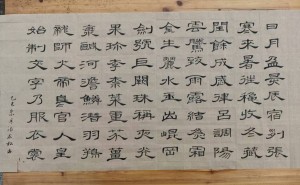 日月盈昃辰宿列張
寒來暑往秋收冬藏
閏餘成歲律呂調陽
雲騰致雨露結為霜
金生麗水玉出崐岡
劍號巨闕珠稱夜光
果珍李柰菜重芥薑
海鹹河淡鱗潛羽翔
龍師火帝鳥官人皇
始制文字乃服衣裳